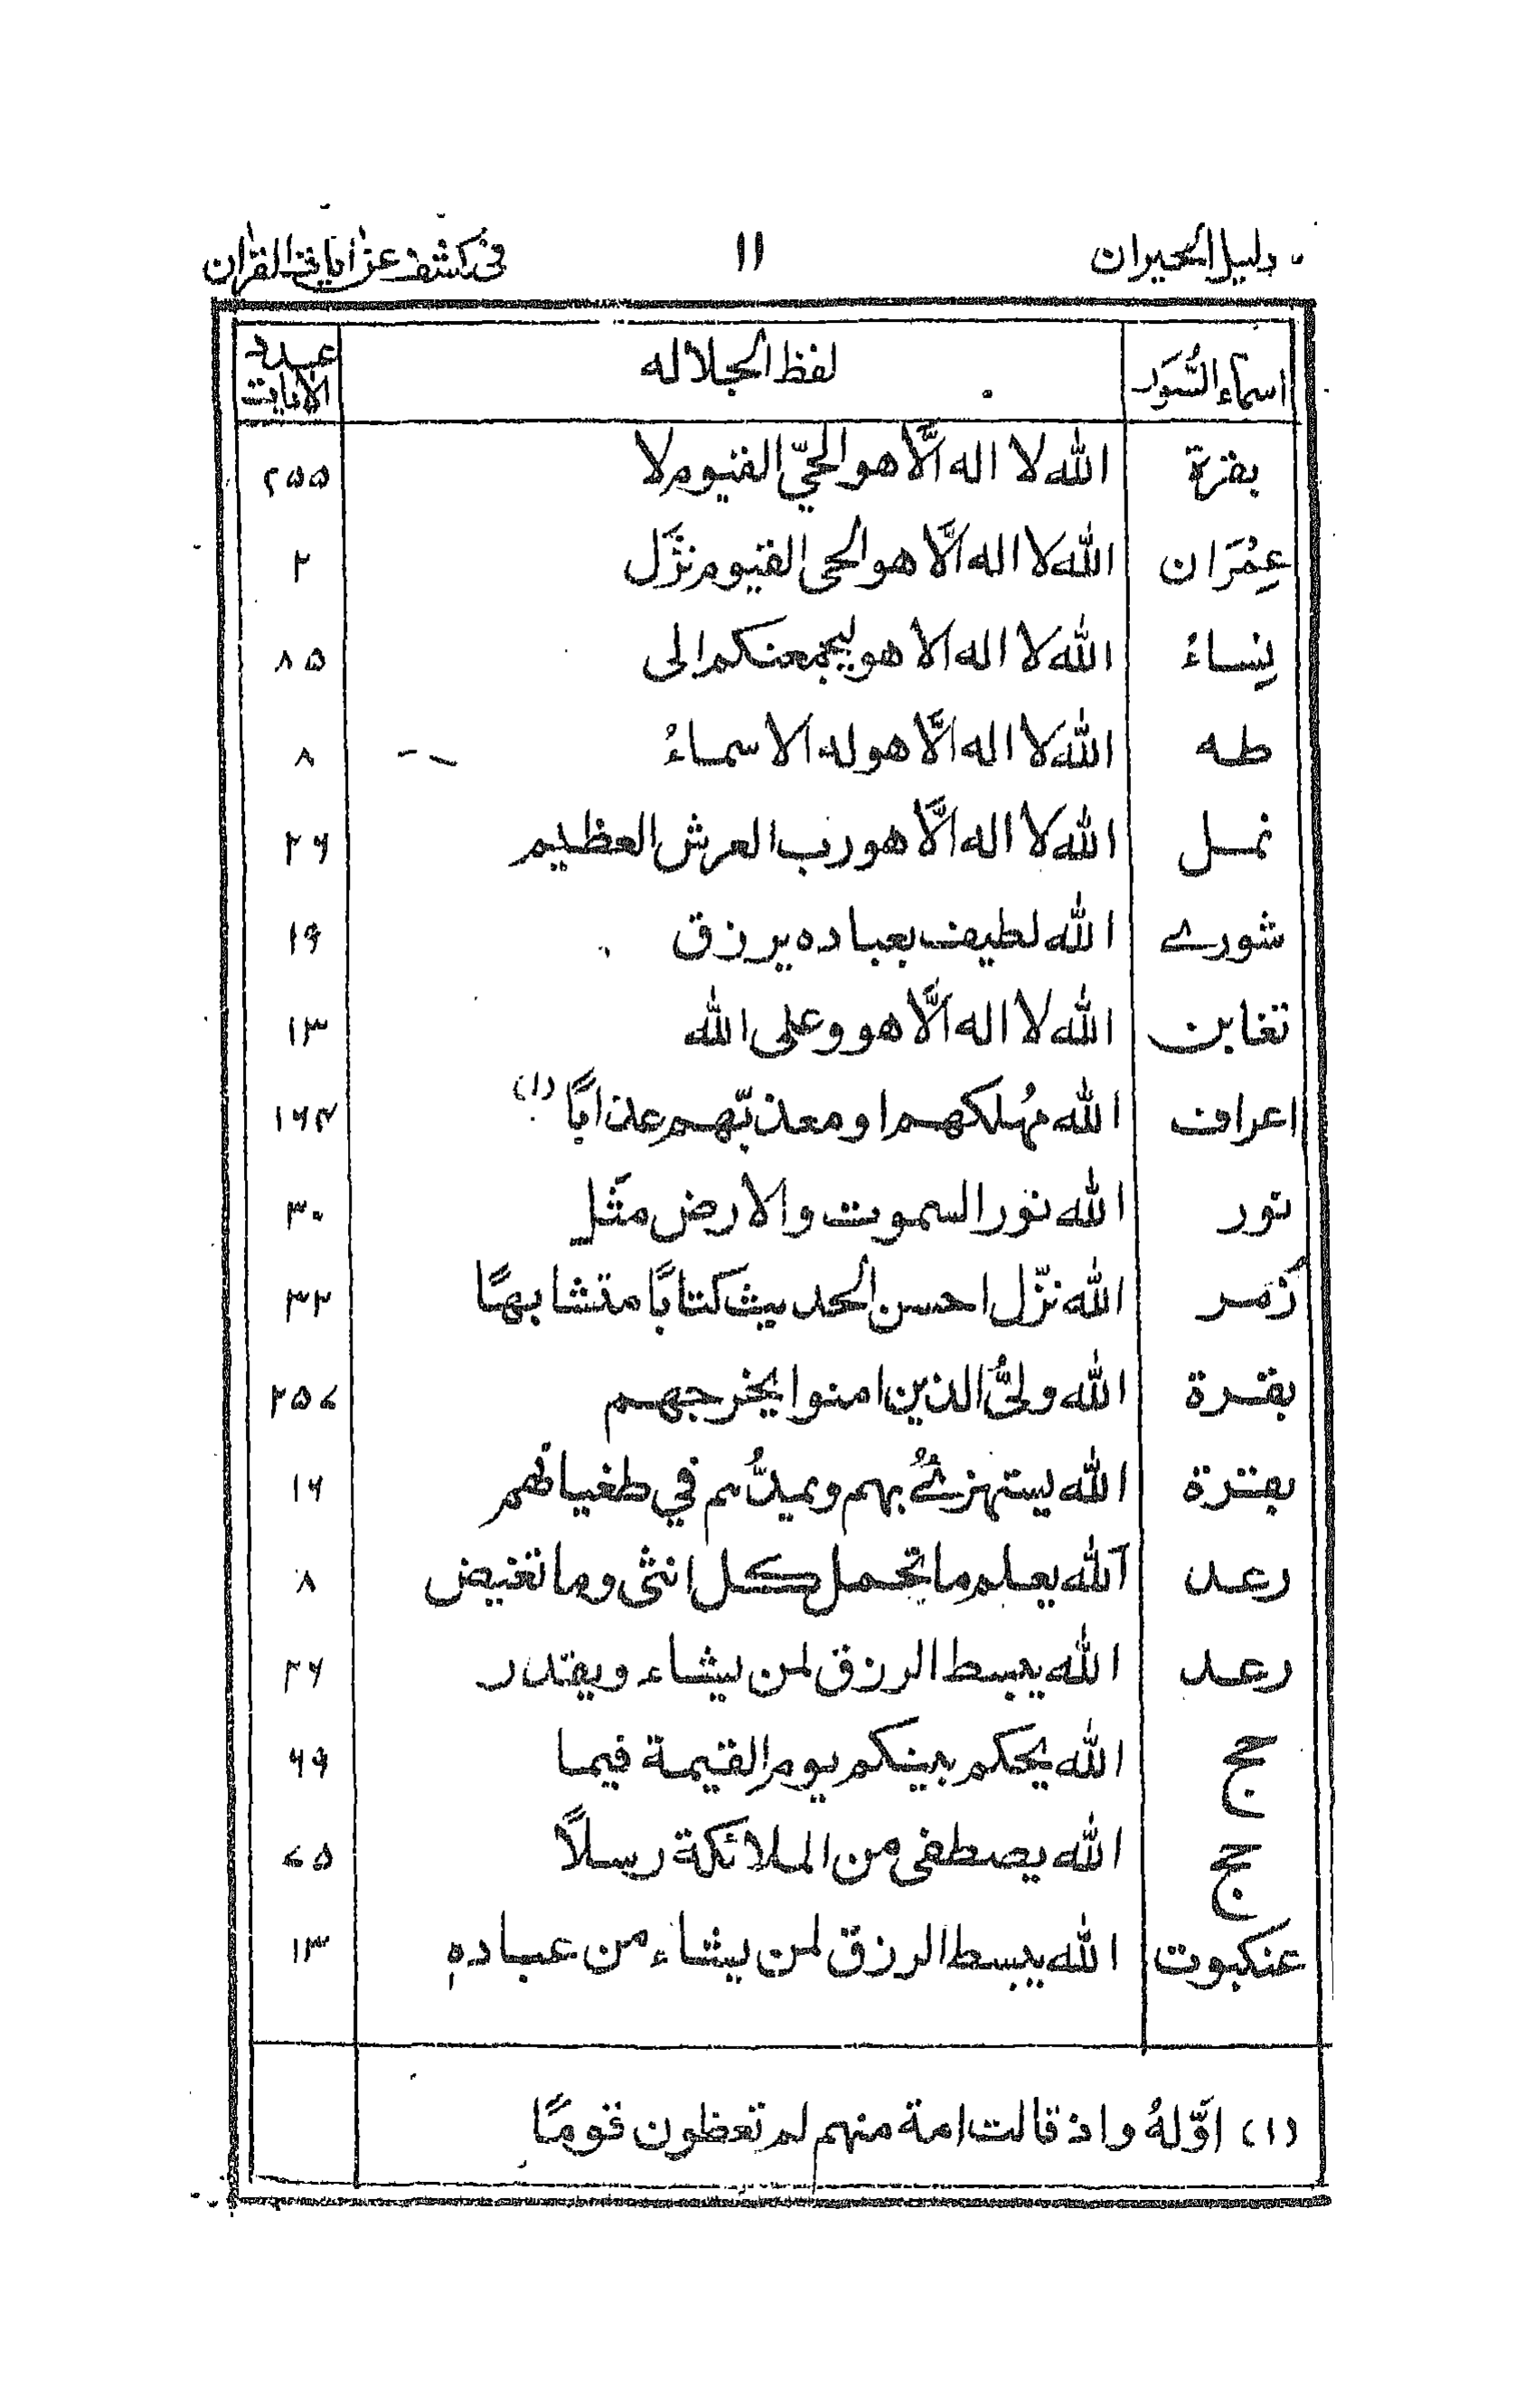 دليل الحيران ۱۱ في كشف عن ايات القران
اسماء السُّوَر لفظ الجلاله عدد الايات
بقرة الله لا اله الّا هو الحيّ القيوم لا ۲۵۵
عِمْرَان الله لا اله الّا هو الحى القيوم نزَّل ۲
نِساءُ الله لا اله الا هو ليجمعنكم الى ۸۵
طه الله لا اله الّا هو له الاسماءُ ۸
نمل الله لا اله الّا هو رب العرش العظيم ۲۶
شورے الله لطيف بعباده يرزق ۱۹
تغابن الله لا اله الّا هو وعلى الله ۱۳
اعراف الله مُهلكهم او معذبّهم عذاباً (۱) ۱۶۴
نور الله نور السموت والارض مثَل ۳۰
زُمر الله نزّل احسن الحديث كتاباً متشابهًا ۲۳
بقرة الله ولىُّ الذين امنوا يخرجهم ۲۵۷
بقرة الله يستهزئُ بهم ويمدُّهم في طغيانهم ۱۶
رعد اَلله يعلم ما تحمل كل انثى وما تغيض ۸
رعد الله يبسط الرزق لمن يشاء ويقدر ۲۶
حج الله يحكم بينكم يوم القيمة فيما ۶۹
حج الله يصطفى من الملائكة رسلاً ۷۵
عنكبوت الله يبسط الرزق لمن يشاء من عبادهٖ ۱۳
(۱) اوّلهُ واذ قالت امة منهم لم تعظون قومًا